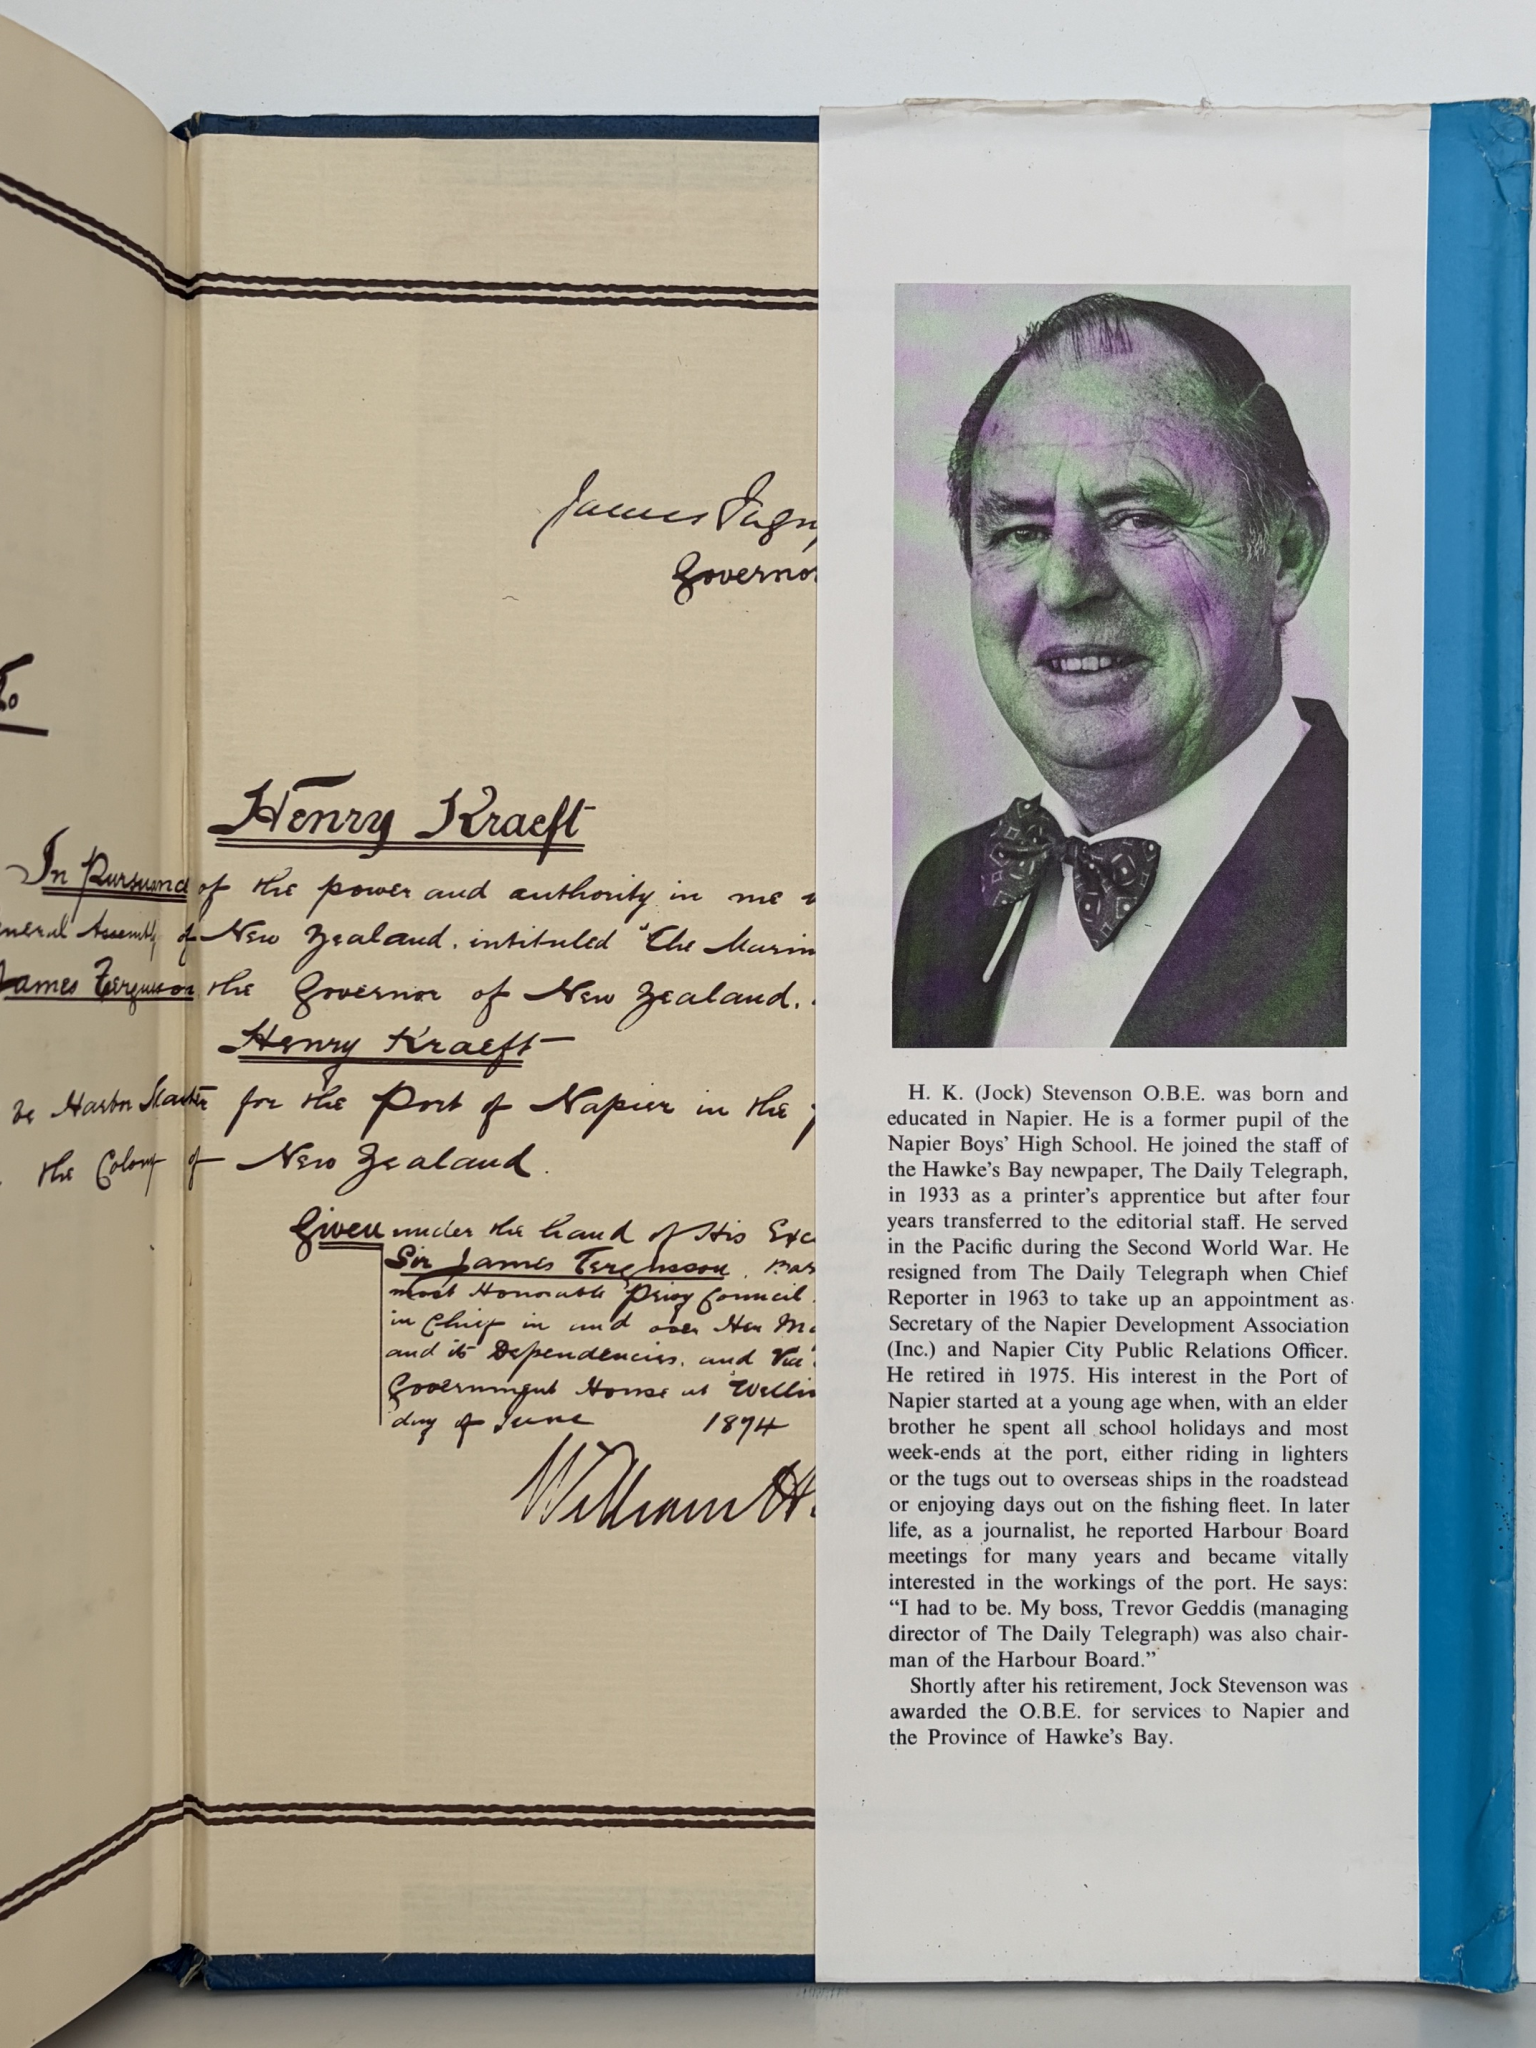 James
Governor
To
Henry Kraeft
In Pursuance of the power and authority in me
General Assembly of New Zealand, intituled "The Marin
James Fergusson the Governor of New Zealand.
Henry Kraeft
be Harbor Master for the Port of Napier in the
the Colony of New Zealand.
Given under the hand of His Exc
Sir James Fergusson, Bar
most Honorable Privy Council
in Chief in and over Her Ma
and its Dependencies, and Vice
Government House at Wellin
day of June 1874
William H
H. K. (Jock) Stevenson O.B.E. was born and
educated in Napier. He is a former pupil of the
Napier Boys' High School. He joined the staff of
the Hawke's Bay newspaper, The Daily Telegraph,
in 1933 as a printer's apprentice but after four
years transferred to the editorial staff. He served
in the Pacific during the Second World War. He
resigned from The Daily Telegraph when Chief
Reporter in 1963 to take up an appointment as
Secretary of the Napier Development Association
(Inc.) and Napier City Public Relations Officer.
He retired in 1975. His interest in the Port of
Napier started at a young age when, with an elder
brother he spent all school holidays and most
week-ends at the port, either riding in lighters
or the tugs out to overseas ships in the roadstead
or enjoying days out on the fishing fleet. In later
life, as a journalist, he reported Harbour Board
meetings for many years and became vitally
interested in the workings of the port. He says:
"I had to be. My boss, Trevor Geddis (managing
director of The Daily Telegraph) was also chair-
man of the Harbour Board."
Shortly after his retirement, Jock Stevenson was
awarded the O.B.E. for services to Napier and
the Province of Hawke's Bay.